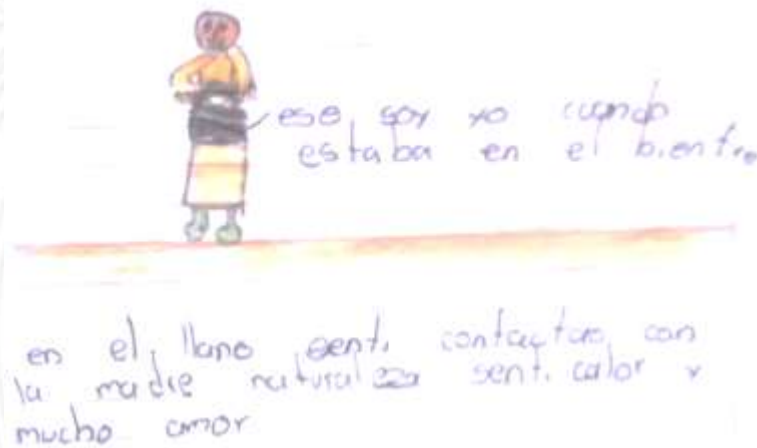 ese soy yo cuando
estaba en el bientre
en el llano senti contactar con
la madre naturaleza senti calor y
mucho amor